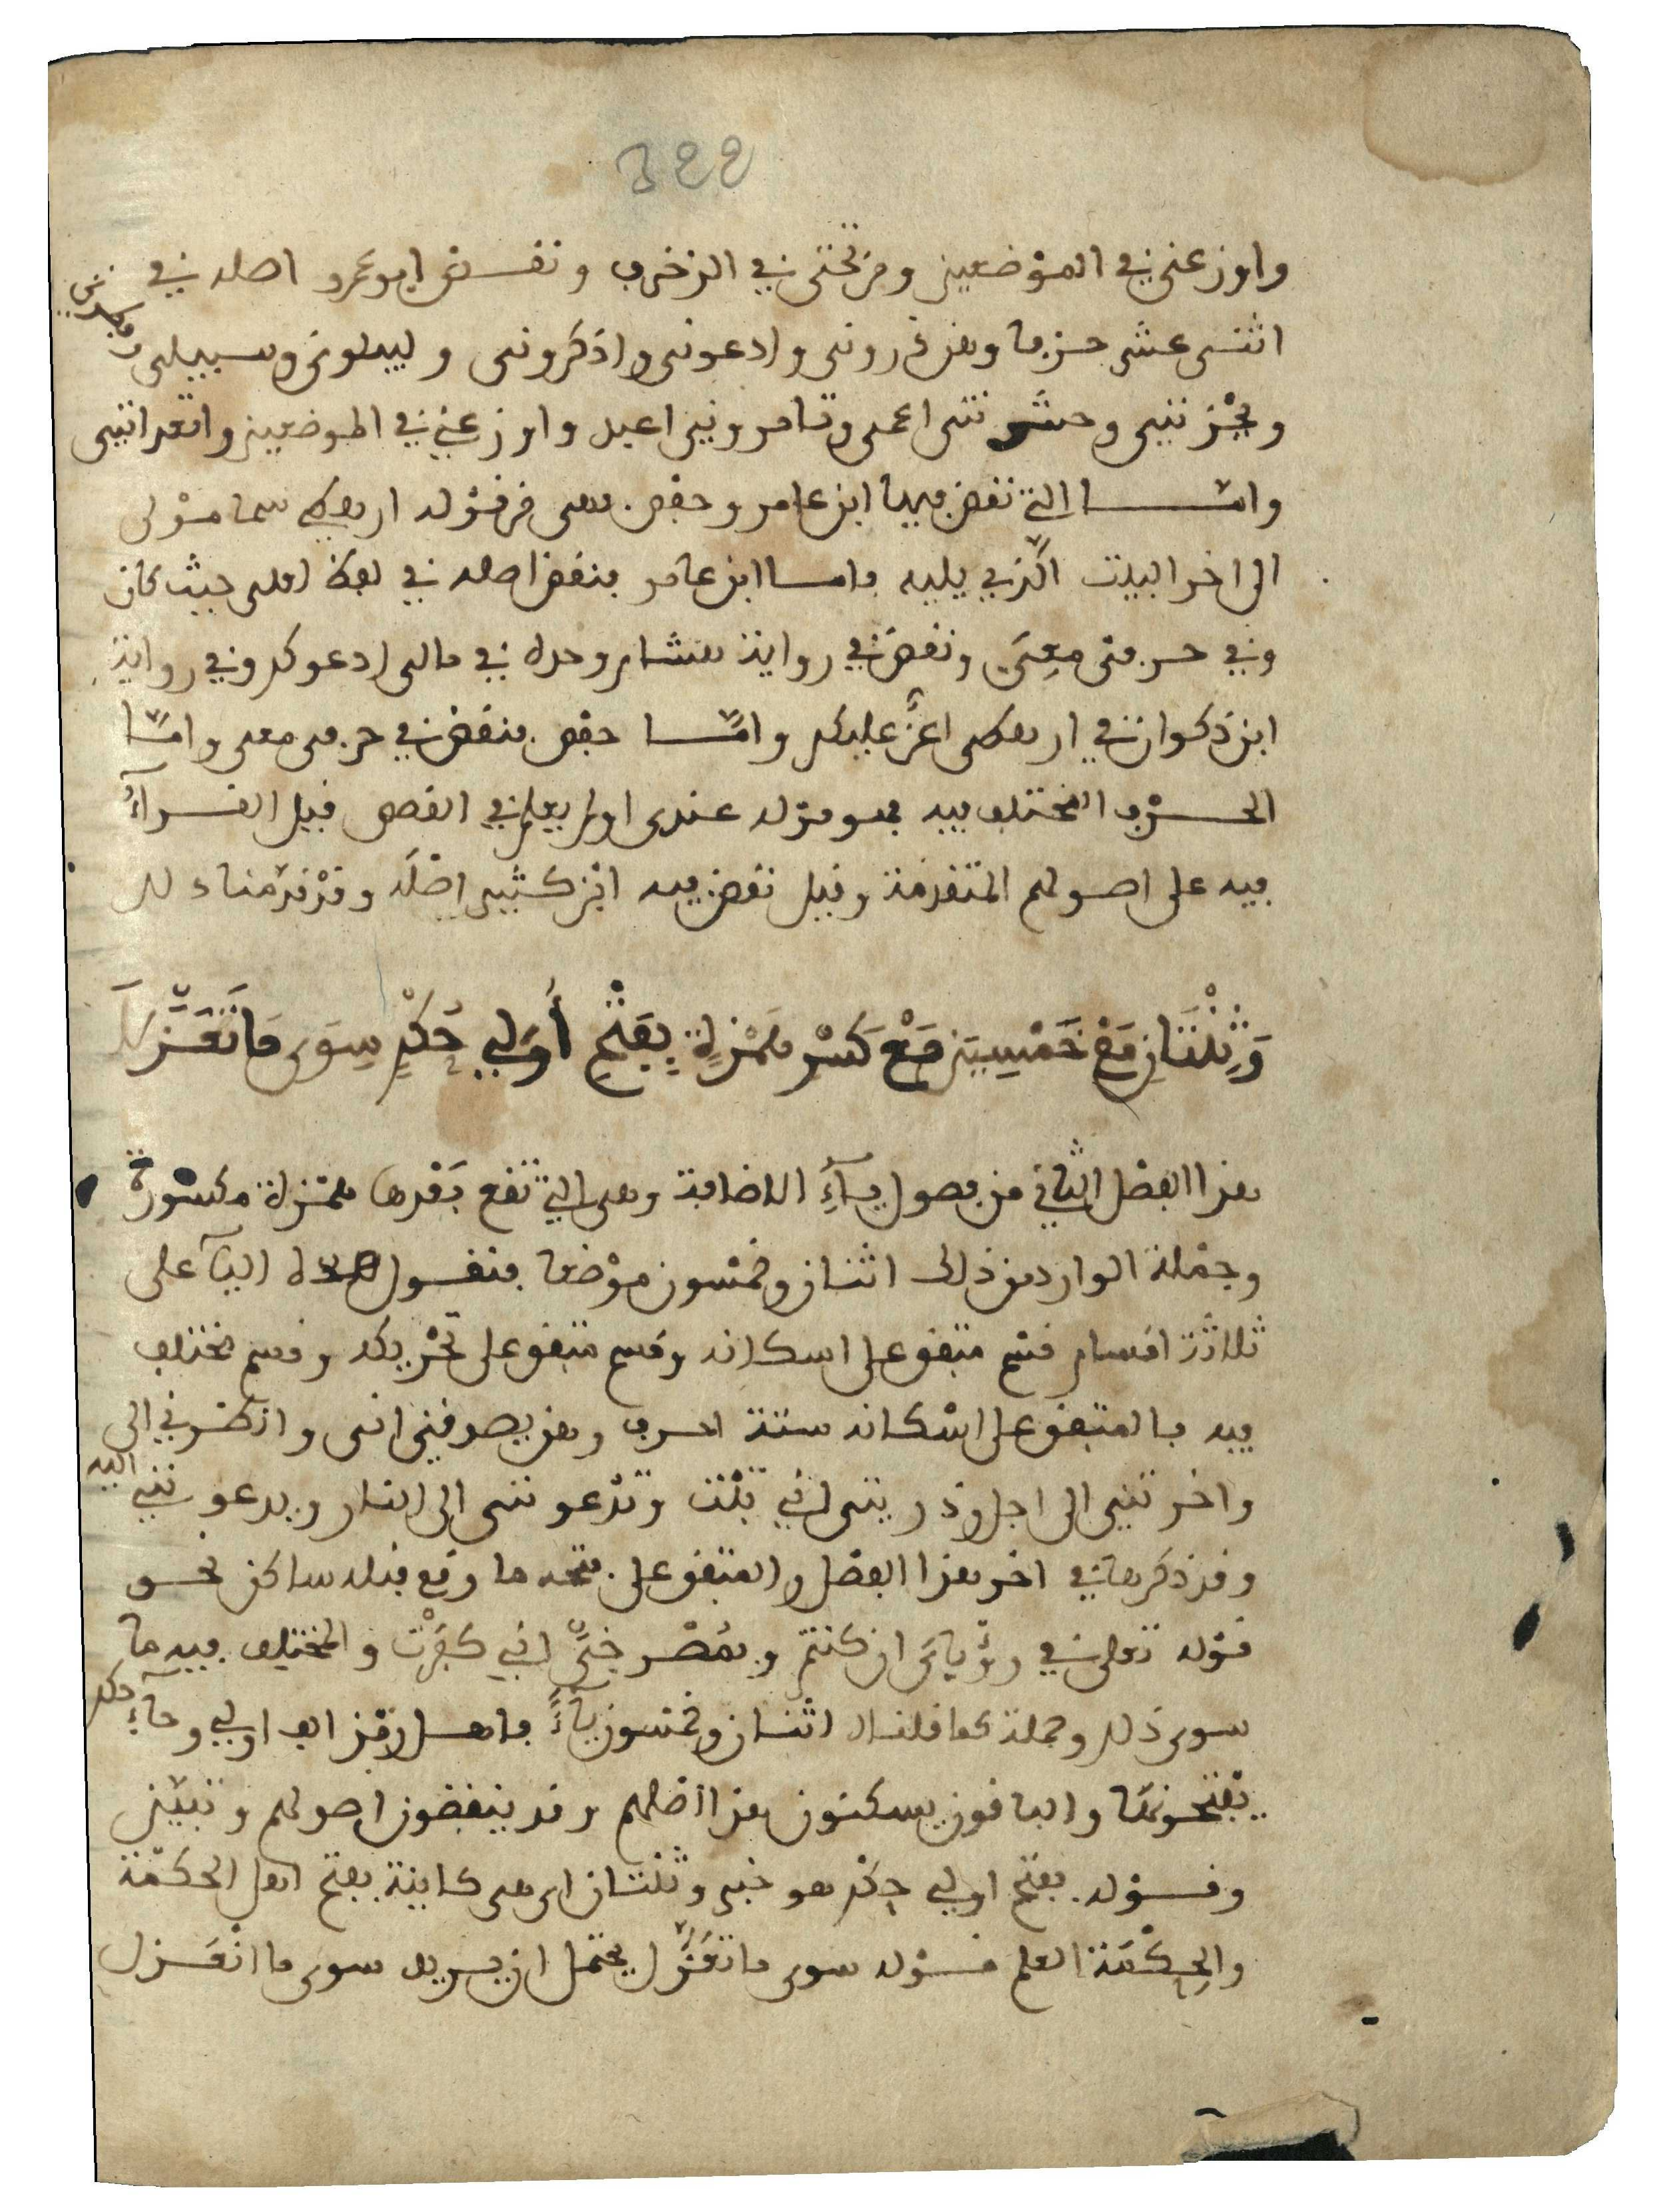 322
واوزعني في الموضعين ومن تحتي في الزخرف ونقض ابو عمرو اصله في
اثني عشر حرفا وهن ذروني وادعوني واذكروني وليبلوني وسبيلي
ويحزنني وحشرتني اعمى وتامروني اعبد واوزعني في الموضعين واتعدانني
وامـا التي نقض فيها ابن عامر وحفص فهي من قوله ارهطي سما مولى
الى اخر البيت الذي يليه واما ابن عامر فنقض اصله في لفظ لعلي حيث كان
وفي حرفي معي ونقض في رواية هشام وحده في مالي ادعوكم وفي رواية
ابن ذكوان في ارهطي اعز عليكم وامّا حفص فنقض في حرفي معي وامّا
الحرف المختلف فيه فهو قوله عندي اولم يعلم في القصص فقيل القرآء
فيه على اصولهم المتقدمة وقيل نقض فيه ابن كثير اصله وقد قدمناه لك
وَثِنْتَانِ مَعْ خَمْسِينَ مَعْ كَسْرِ هَمْزَةٍ بِفَتْحِ أُولِي حُكْمٍ سِوَى مَا تَعَزَّلَا
هذا الفصل الثاني من فصول يآءِ الاضافة وهي التي تقع بعدها همزة مكسورة
وجملة الوارد من ذلك اثنان وخمسون موضعا فنقول هذه اليآ على
ثلاثة اقسام قسم متفق على اسكانه وقسم متفق على تحريكه وقسم مختلف
فيه فالمتفق على اسكانه ستة احرف وهن يصدقني اني وانظرني الى
واخرتني الى اجل وذريتي اني تبت وتدعونني الى النار ويدعونني اليه
وقد ذكرها في اخر هذا الفصل والمتفق على فتحه ما وقع قبله ساكن نحو
قوله تعلى في رؤياي ان كنتم وبمصرخيّ اني كفرت والمختلف فيه ما
سوى ذلك وجملته كما قلنا اثنان وخمسون يآءً فاهل رمز الف اولي وحآءِ حكم
يفتحونها والباقون يسكنون هذا اصلهم وقد ينقضون اصولهم وتبيّن
وقوله بفتح اولي حكم هو خبر وثنتان اي هي كاينة بفتح اهل الحكمة
والحِكْمَة العلم قوله سوى ما تعزّل يحتمل ان يريد سوى ما انعزل